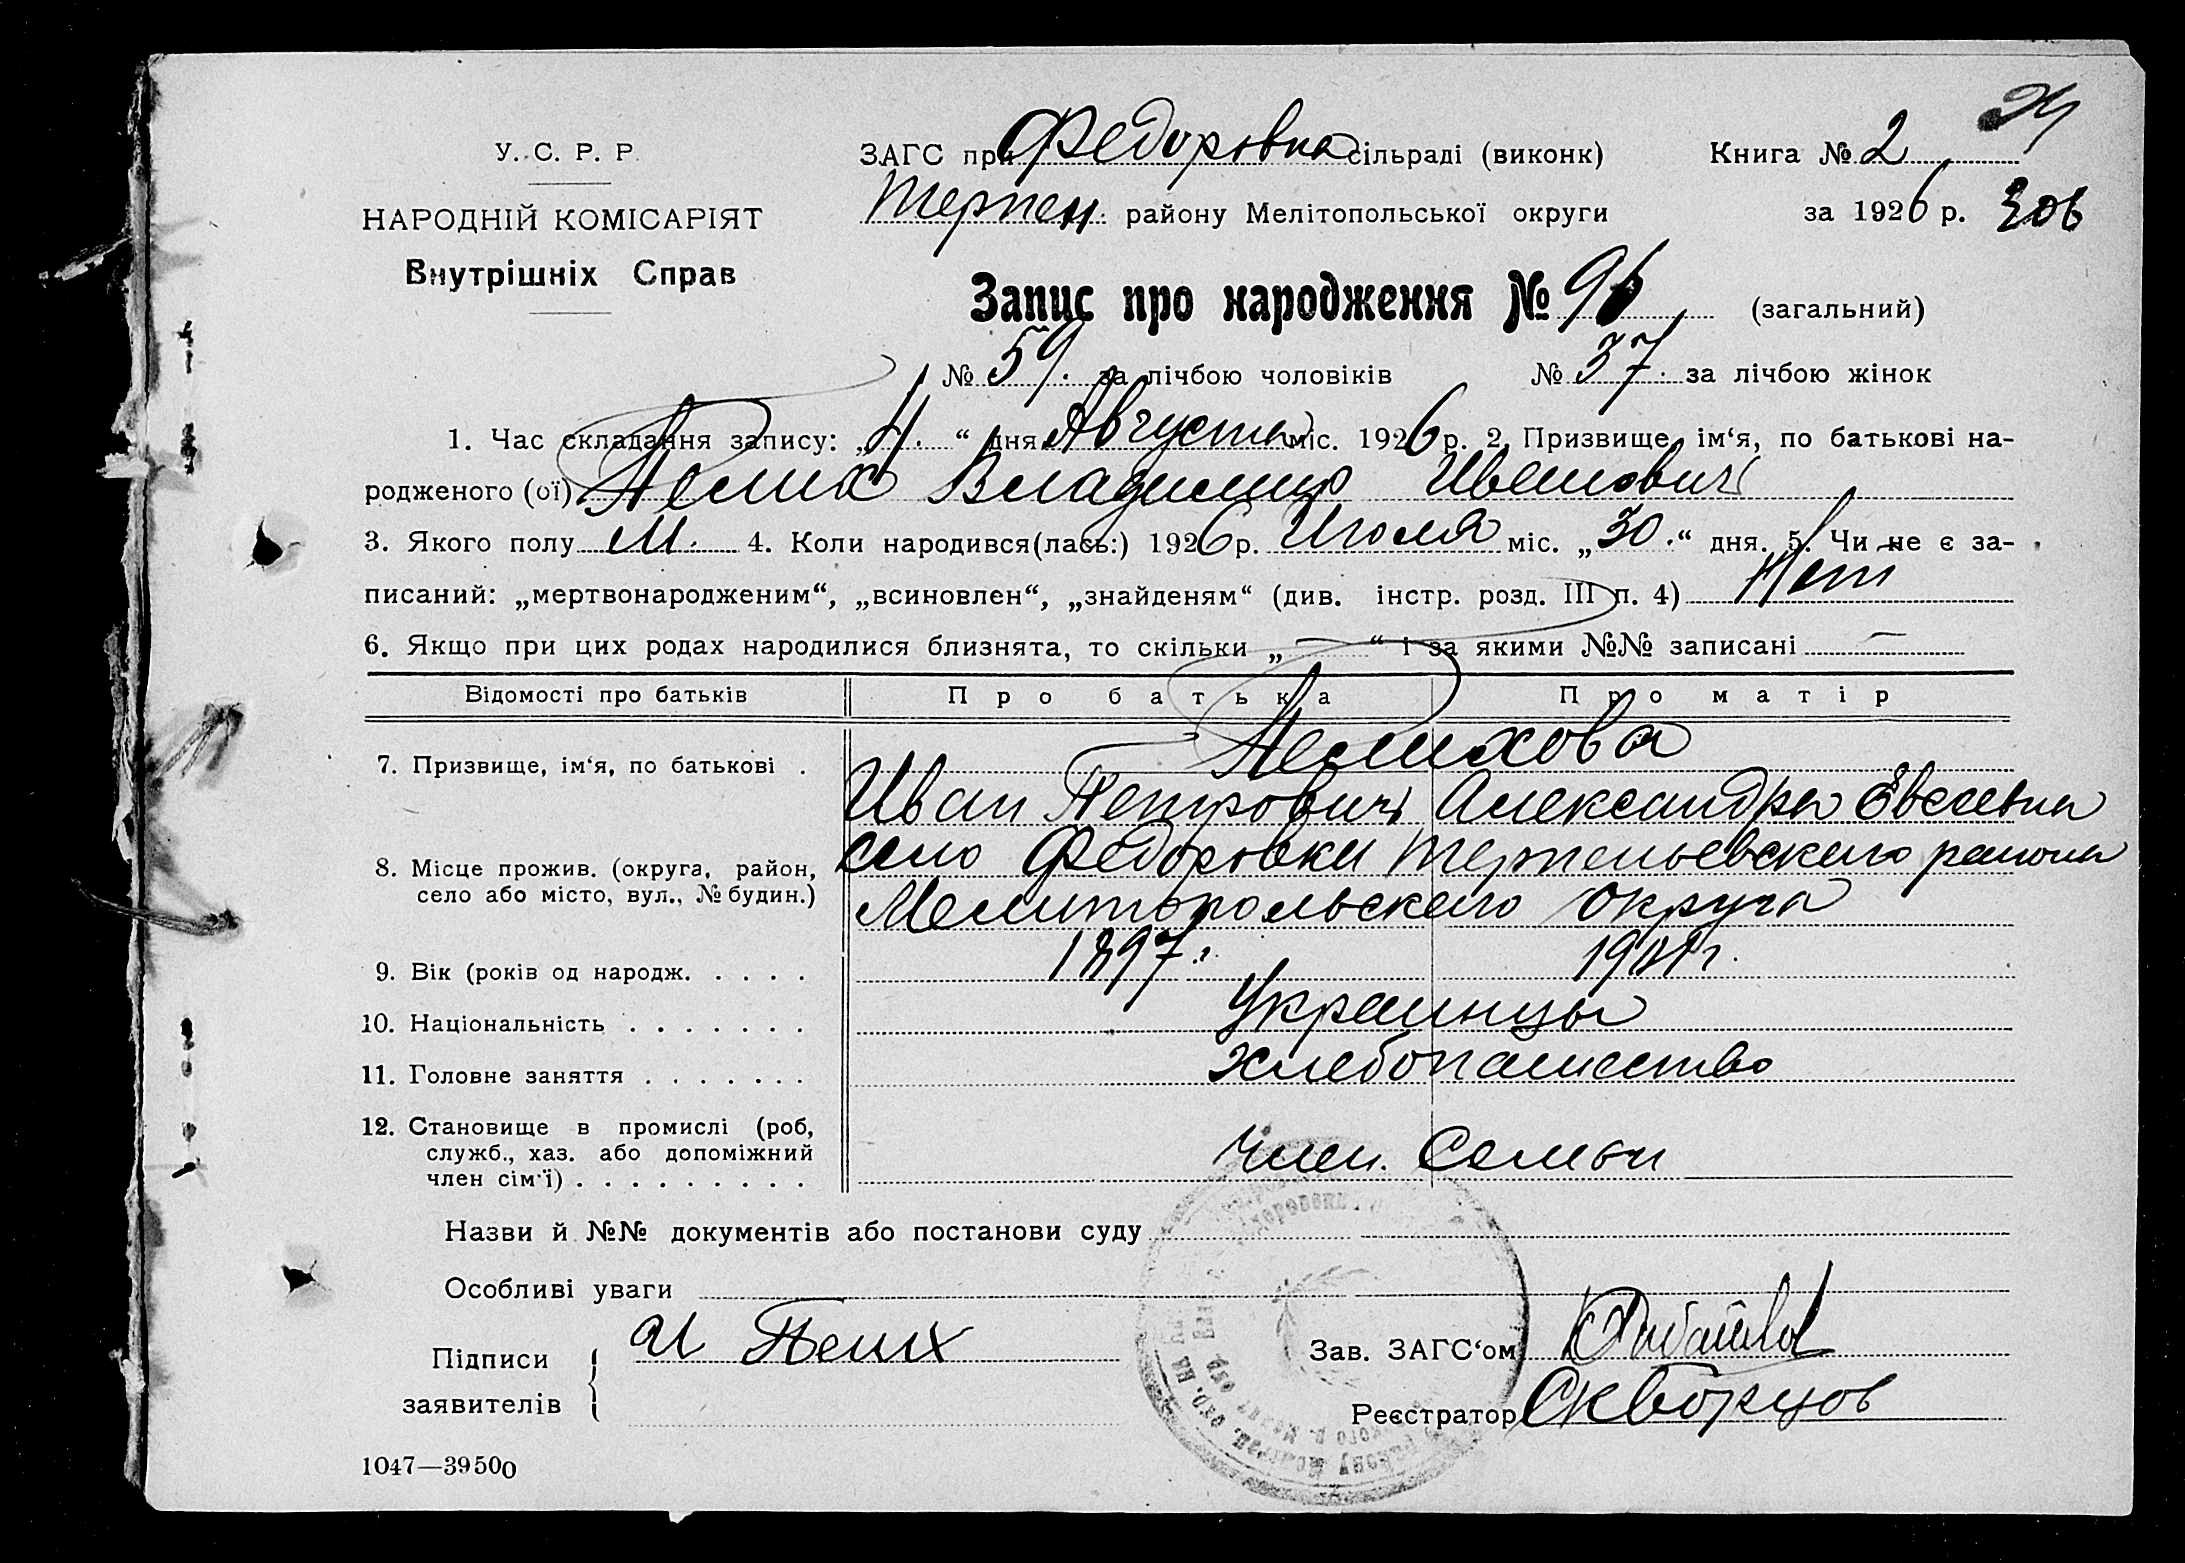 24
У. С. Р. Р.
НАРОДНІЙ КОМІСАРІЯТ
Внутрішніх Справ
ЗАГС при Федоровка сільраді (виконк) Книга № 2
Терпен. району Мелітопольської округи за 1926 р. 306
Запис про народження № 96 (загальний)
№ 59. за лічбою чоловіків № 37. за лічбою жінок
1. Час складання запису: „4.“ дня Августа міс. 1926 р. 2. Призвище, ім‘я, по батькові на-
родженого (ої) Пелих Владимир Иванович
3. Якого полу М. 4. Коли народився(лась:) 1926 р. Июля міс. „30.“ дня. 5. Чи не є за-
писаний: „мертвонародженим“, „всиновлен“, „знайденям“ (див. інстр. розд. III п. 4) Нет
6. Якщо при цих родах народилися близнята, то скільки „—“ і за якими №№ записані —
Відомості про батьків Про батька Про матір
7. Призвище, ім‘я, по батькові . Пелихова
Иван Петрович Александра Евсеевна
8. Місце прожив. (округа, район, село Федоровки Терпеньевского района
село або місто, вул., № будин.) Мелитопольского округа
9. Вік (років од народж. . . . . 1897г.
10. Національність . . . . . . . Украинцы
11. Головне заняття . . . . . . . Хлебопашество
12. Становище в промислі (роб,
служб., хаз. або допоміжний Член. Семьи
член сім‘ї) . . . . . . . . .
Назви й №№ документів або постанови суду
Особливі уваги
Підписи
заявителів
И Пелих
Зав. ЗАГС‘ом
Реєстратор Скворцов
1047—39500